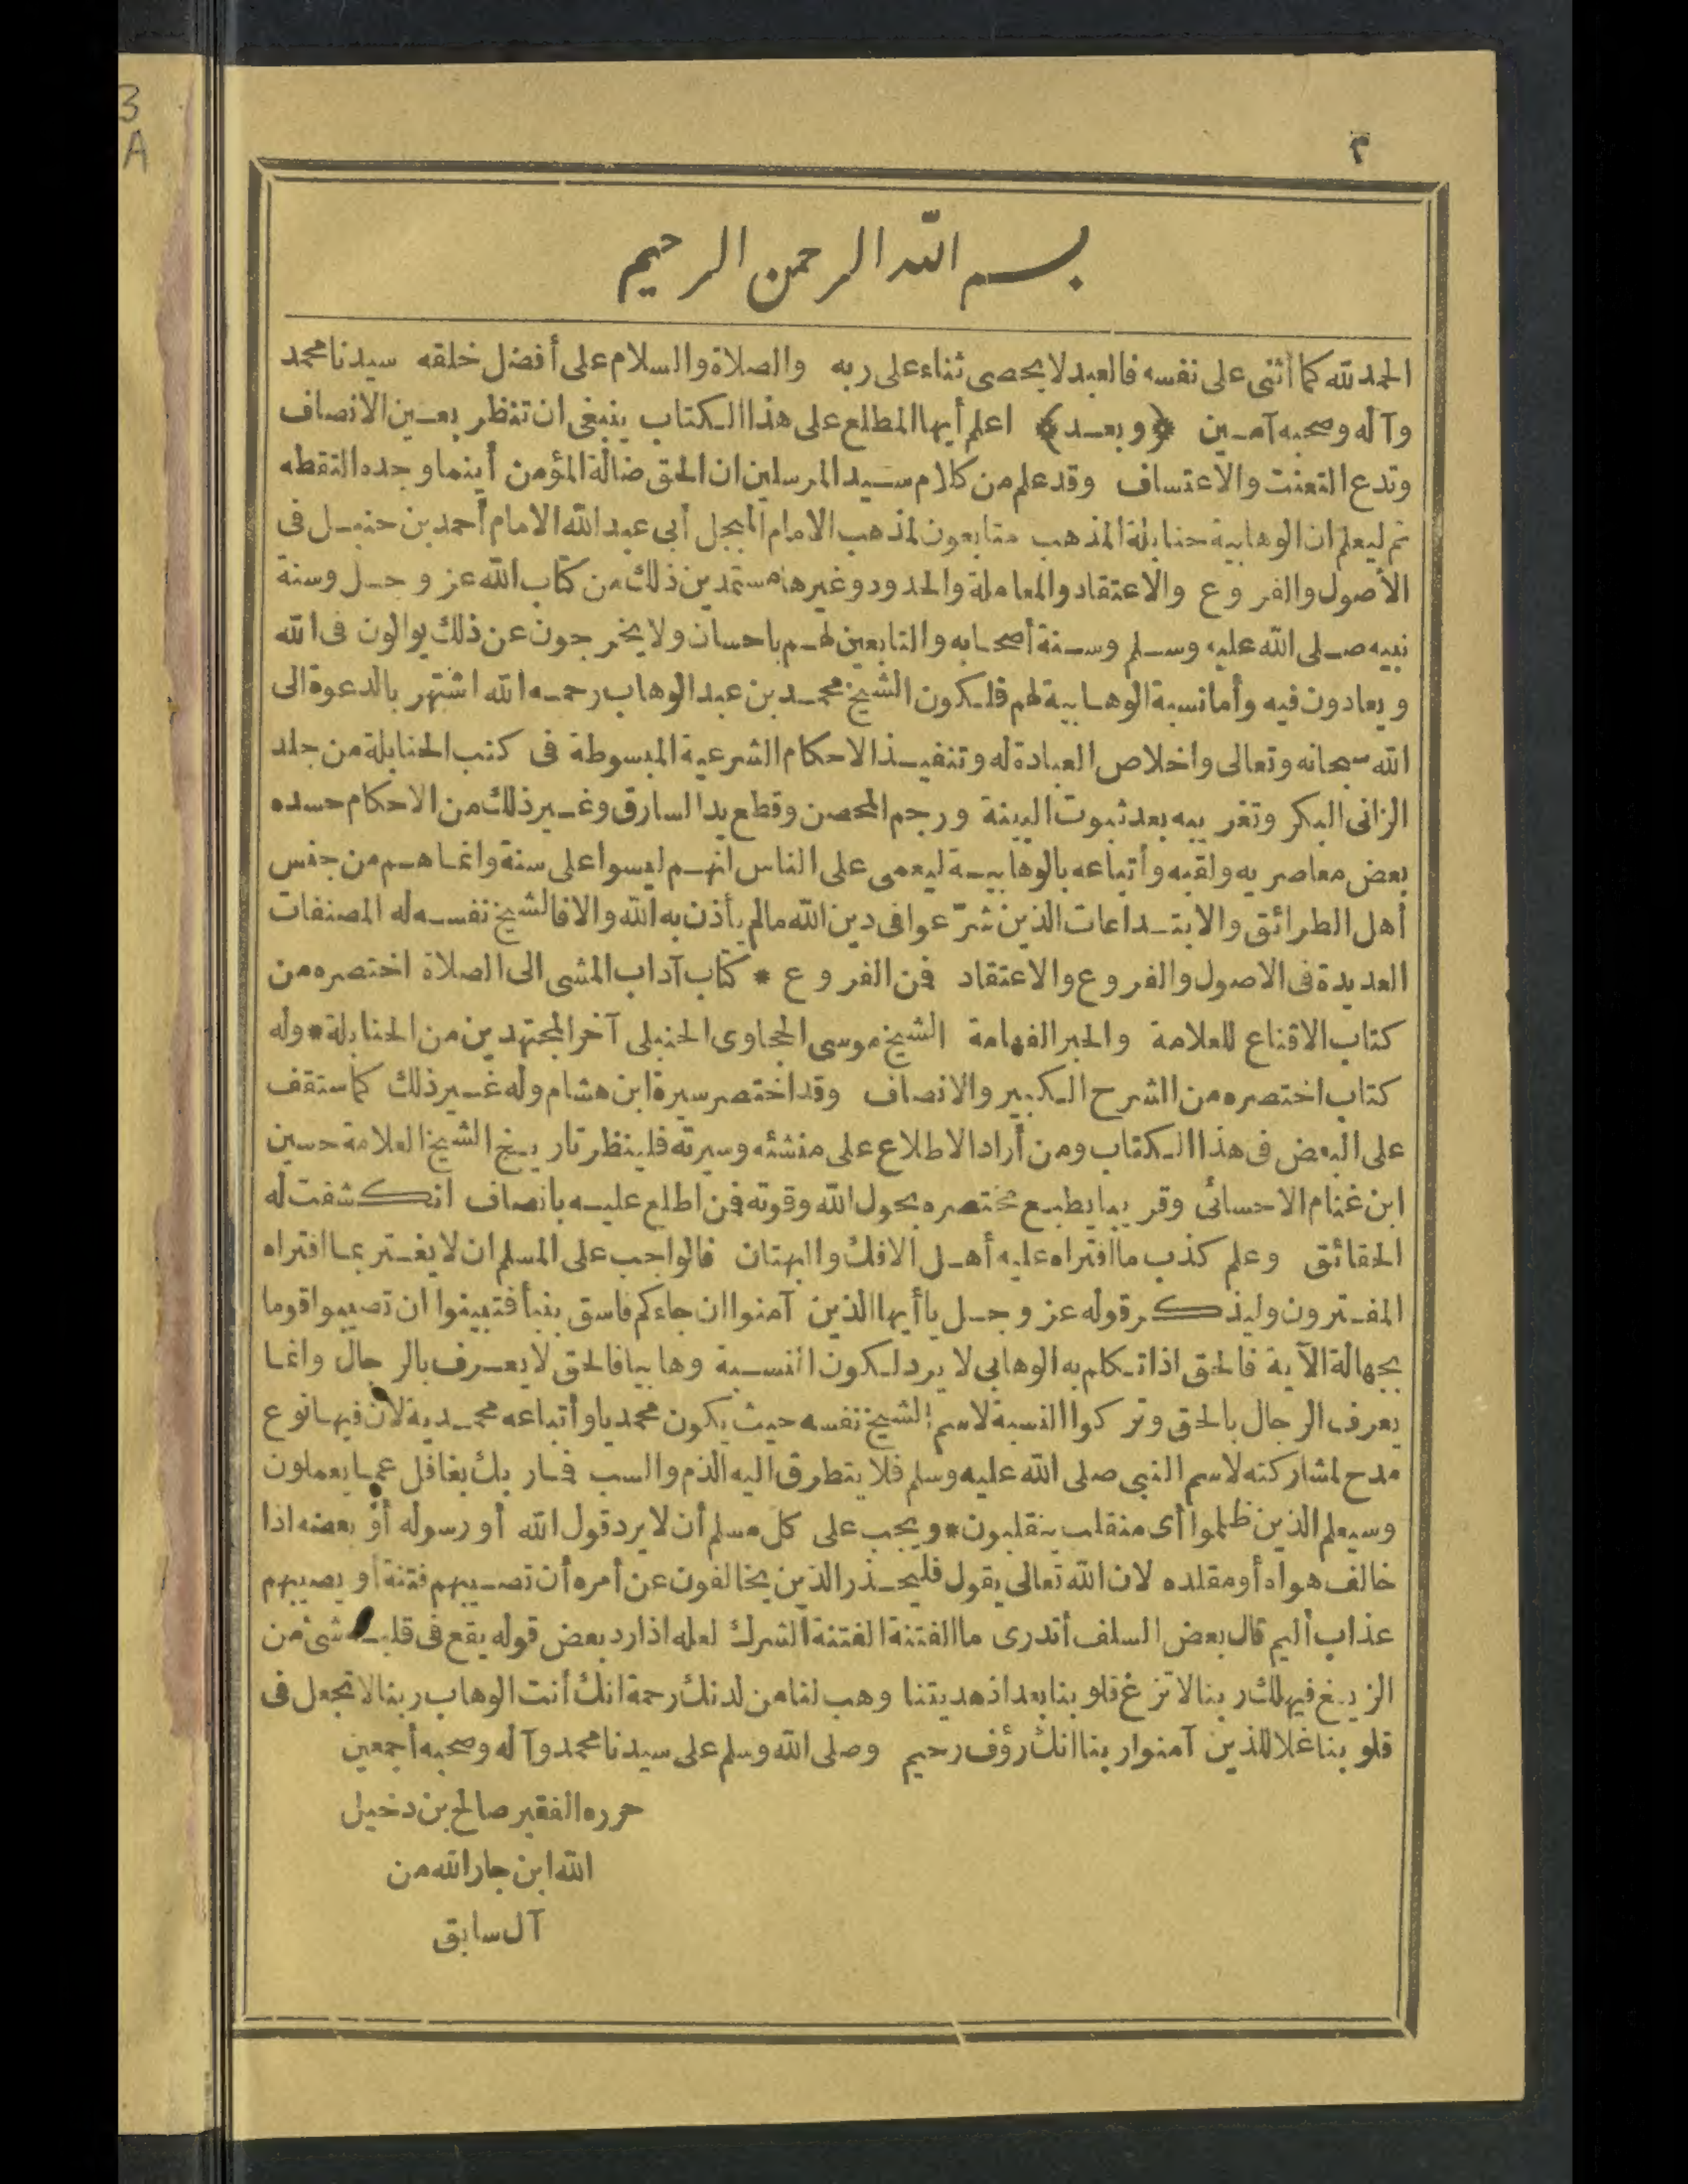 3
A
٢
بسم الله الرحمن الرحيم
الحمد لله كما أثنى على نفسه فالعبد لا يحصى ثناء على ربه والصلاة والسلام على أفضل خلقه سيدنا محمد
وآله وصحبه آمين ﴿وبعد﴾ اعلم أيها المطلع على هذا الكتاب ينبغى ان تنظر بعين الانصاف
وتدع التعنت والاعتساف وقد علم من كلام سيد المرسلين ان الحق ضالة المؤمن أينما وجده التقطه
ثم ليعلم ان الوهابية حنابلة المذهب متابعون لمذهب الامام المبجل أبى عبد الله الامام أحمد بن حنبل فى
الأصول والفروع والاعتقاد والمعاملة والحدود وغيرها مستمدين ذلك من كتاب الله عز وجل وسنة
نبيه صلى الله عليه وسلم وسنة أصحابه والتابعين لهم باحسان ولا يخرجون عن ذلك يوالون فى الله
ويعادون فيه وأما نسبة الوهابية لهم فلكون الشيخ محمد بن عبد الوهاب رحمه الله اشتهر بالدعوة الى
الله سبحانه وتعالى واخلاص العبادة له وتنفيذ الاحكام الشرعية المبسوطة فى كتب الحنابلة من جلد
الزانى البكر وتغريبه بعد ثبوت البينة ورجم المحصن وقطع يد السارق وغير ذلك من الاحكام حسده
بعض معاصريه ولقبه وأتباعه بالوهابية ليعمى على الناس انهم ليسوا على سنة وانما هم من جنس
أهل الطرائق والابتداعات الذين شرّعوا فى دين الله مالم يأذن به الله والا فالشيخ نفسه له المصنفات
العديدة فى الاصول والفروع والاعتقاد فمن الفروع * كتاب آداب المشى الى الصلاة اختصره من
كتاب الاقناع للعلامة والحبر الفهامة الشيخ موسى الحجاوى الحنبلى آخر المجتهدين من الحنابلة * وله
كتاب اختصره من الشرح الكبير والانصاف وقد اختصر سيرة ابن هشام وله غير ذلك كما ستقف
على البعض فى هذا الكتاب ومن أراد الاطلاع على منشئه وسيرته فلينظر تاريخ الشيخ العلامة حسين
ابن غنام الاحسائى وقريبا يطبع مختصره بحول الله وقوته فمن اطلع عليه بانصاف انكشفت له
الحقائق وعلم كذب ما افتراه عليه أهل الافك والبهتان فالواجب على المسلم ان لا يغتر بما افتراه
المفترون وليذكر قوله عز وجل ياأيها الذين آمنوا ان جاءكم فاسق بنبأ فتبينوا ان تصيبوا قوما
بجهالة الآية فالحق اذا تكلم به الوهابى لا يرد لكون النسبة وهابيا فالحق لا يعرف بالرجال وانما
يعرف الرجال بالحق وتركوا النسبة لاسم الشيخ نفسه حيث يكون محمديا وأتباعه محمدية لان فيها نوع
مدح لمشاركته لاسم النبى صلى الله عليه وسلم فلا يتطرق اليه الذم والسب فما ربك بغافل عما يعملون
وسيعلم الذين ظلموا أى منقلب ينقلبون * ويجب على كل مسلم أن لا يرد قول الله أو رسوله أو بعضه اذا
خالف هواه أو مقلده لان الله تعالى يقول فليحذر الذين يخالفون عن أمره أن تصيبهم فتنة أو يصيبهم
عذاب أليم قال بعض السلف أتدرى ما الفتنة الفتنة الشرك لعله اذا رد بعض قوله يقع فى قلبه شئ من
الزيغ فيهلك ربنا لا تزغ قلوبنا بعد اذ هديتنا وهب لنا من لدنك رحمة انك أنت الوهاب ربنا لا تجعل فى
قلوبنا غلا للذين آمنوا ربنا انك رؤف رحيم وصلى الله وسلم على سيدنا محمد وآله وصحبه أجمعين
حرره الفقير صالح بن دخيل
الله ابن جار الله من
آل سابق